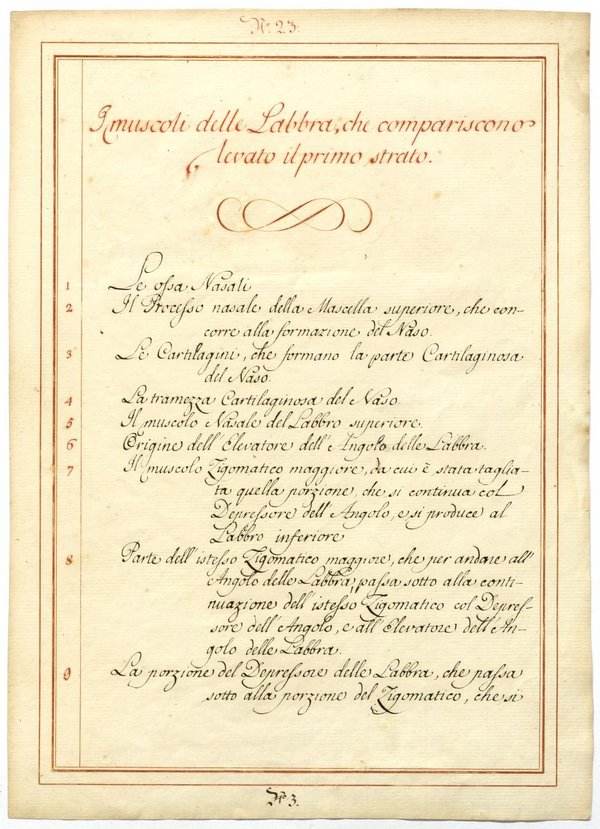 No. 23.
I muscoli delle Labbra, che compariscono
levato il primo strato.
1 Le ossa Nasali
2 Il Processo nasale della Mascella superiore, che con-
corre alla formazione del Naso.
3 Le Cartilagini, che formano la parte Cartilaginosa
del Naso.
4 La tramezza Cartilaginosa del Naso
5 Il muscolo Nasale del Labbro superiore.
6 Origine dell'Elevatore dell'Angolo delle Labbra.
7 Il muscolo Zigomatico maggiore, da cui è stata taglia-
ta quella porzione, che si continua col
Depressore dell'Angolo, e si produce al
Labbro inferiore
8 Parte dell'istesso Zigomatico maggiore, che per andare all'
Angolo delle Labbra, passa sotto alla conti-
nuazione dell'istesso Zigomatico col Depres-
sore dell'Angolo, e all'Elevatore dell'An-
golo delle Labbra.
9 La porzione del Depressore delle Labbra, che passa
sotto alla porzione del Zigomatico, che si
No. 3.